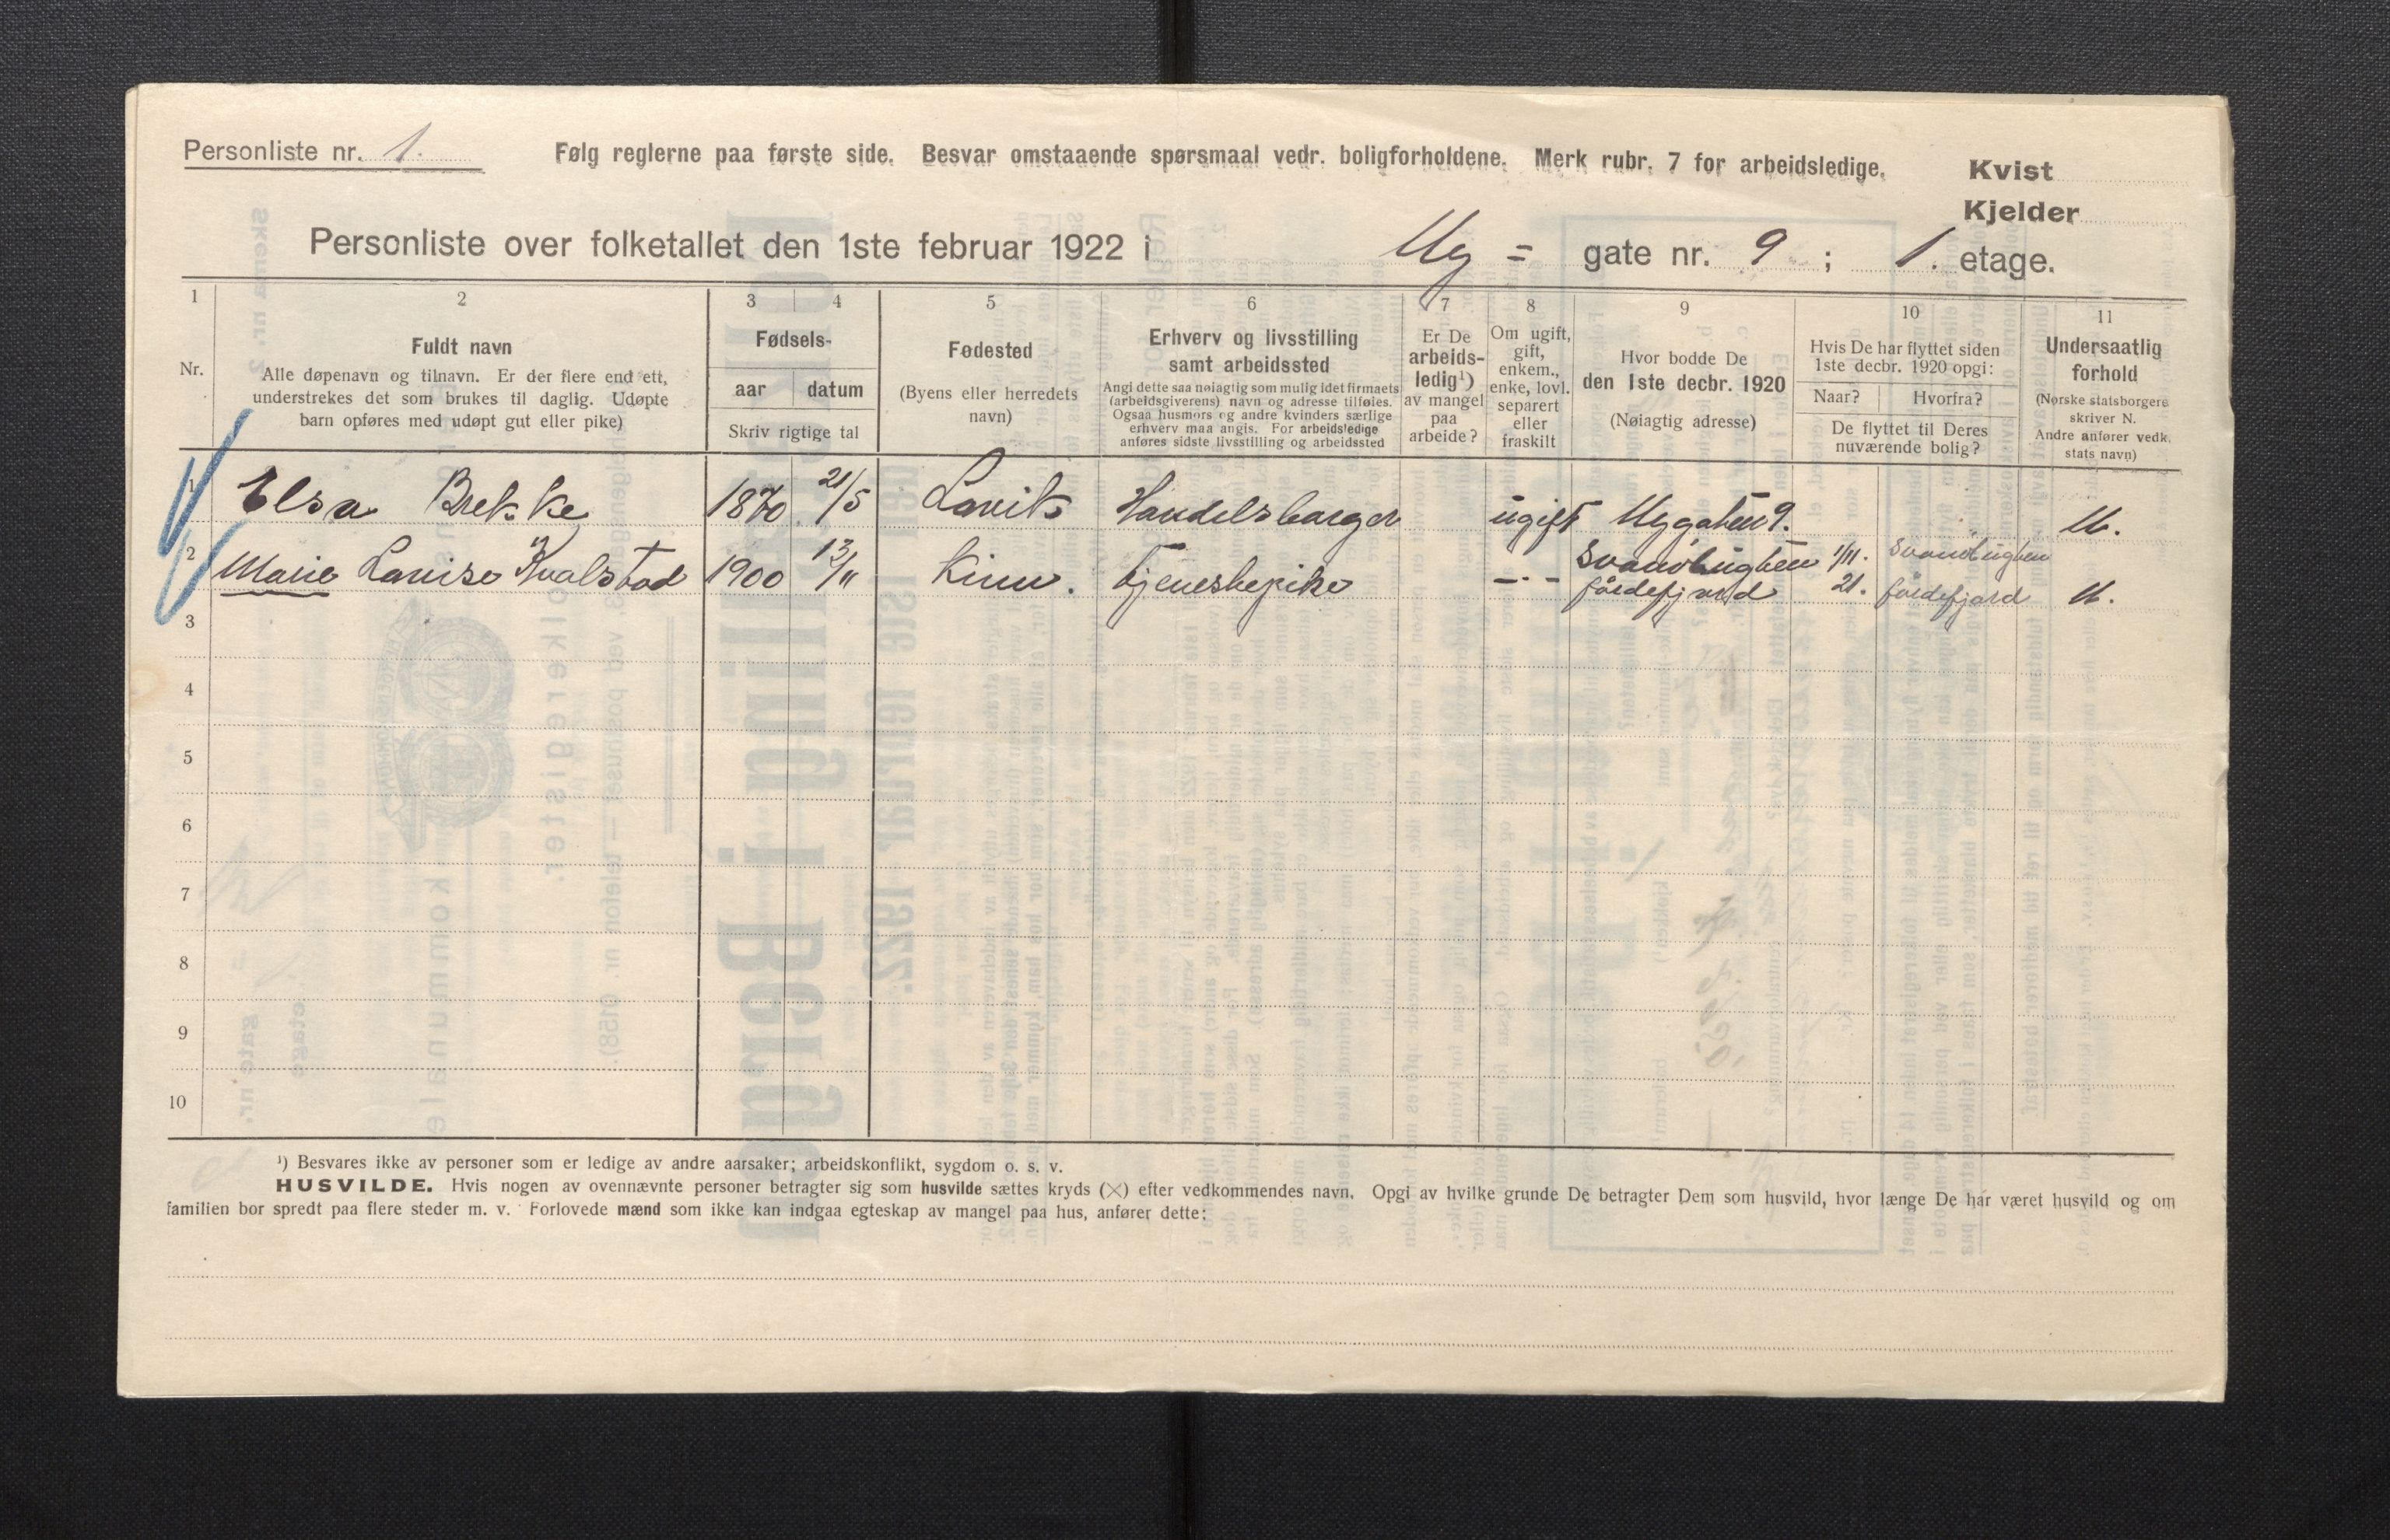 Personliste nr. 1.
Følg reglerne paa første side. Besvar omstaaende spørsmaal vedr. boligforholdene. Merk rubr. 7 for arbeidsledige.
Kvist
Kjelder
Personliste over folketallet den 1ste februar 1922 i Ny = gate nr. 9 ; 1. etage.
1 2 3 4 5 6 7 8 9 10 11
Nr.
Fuldt navn
Alle døpenavn og tilnavn. Er der flere end ett,
understrekes det som brukes til daglig. Udøpte
barn opføres med udøpt gut eller pike)
Fødsels-
aar datum
Skriv rigtige tal
Fødested
(Byens eller herredets
navn)
Erhverv og livsstilling
samt arbeidssted
Angi dette saa nøiagtig som mulig idet firmaets
(arbeidsgiverens) navn og adresse tilføies.
Ogsaa husmors og andre kvinders særlige
erhverv maa angis. For arbeidsledige
anføres sidste livsstilling og arbeidssted
Er De
arbeids-
ledig¹)
av mangel
paa
arbeide?
Om ugift,
gift,
enkem.,
enke, lovl.
separert
eller
fraskilt
Hvor bodde De
den 1ste decbr. 1920
(Nøiagtig adresse)
Hvis De har flyttet siden
1ste decbr. 1920 opgi:
Naar? Hvorfra?
De flyttet til Deres
nuværende bolig?
Undersaatlig
forhold
(Norske statsborgere
skriver N.
Andre anfører vedk.
stats navn)
1 Elsa Brekke 1870 21/5 Lavik Handelsborger ugift Nygaten 9. N.
2 Marie Lovise Kvalstad 1900 13/11 Kinn. Tjenestepike —·— Svanøbugten Førdefjord 1/11. 21. Svanøbugten Førdefjord N.
3
4
5
6
7
8
9
10
¹) Besvares ikke av personer som er ledige av andre aarsaker; arbeidskonflikt, sygdom o. s. v.
HUSVILDE. Hvis nogen av ovennævnte personer betragter sig som husvilde sættes kryds (×) efter vedkommendes navn. Opgi av hvilke grunde De betragter Dem som husvild, hvor længe De har været husvild og om
familien bor spredt paa flere steder m. v. Forlovede mænd som ikke kan indgaa egteskap av mangel paa hus, anfører dette: